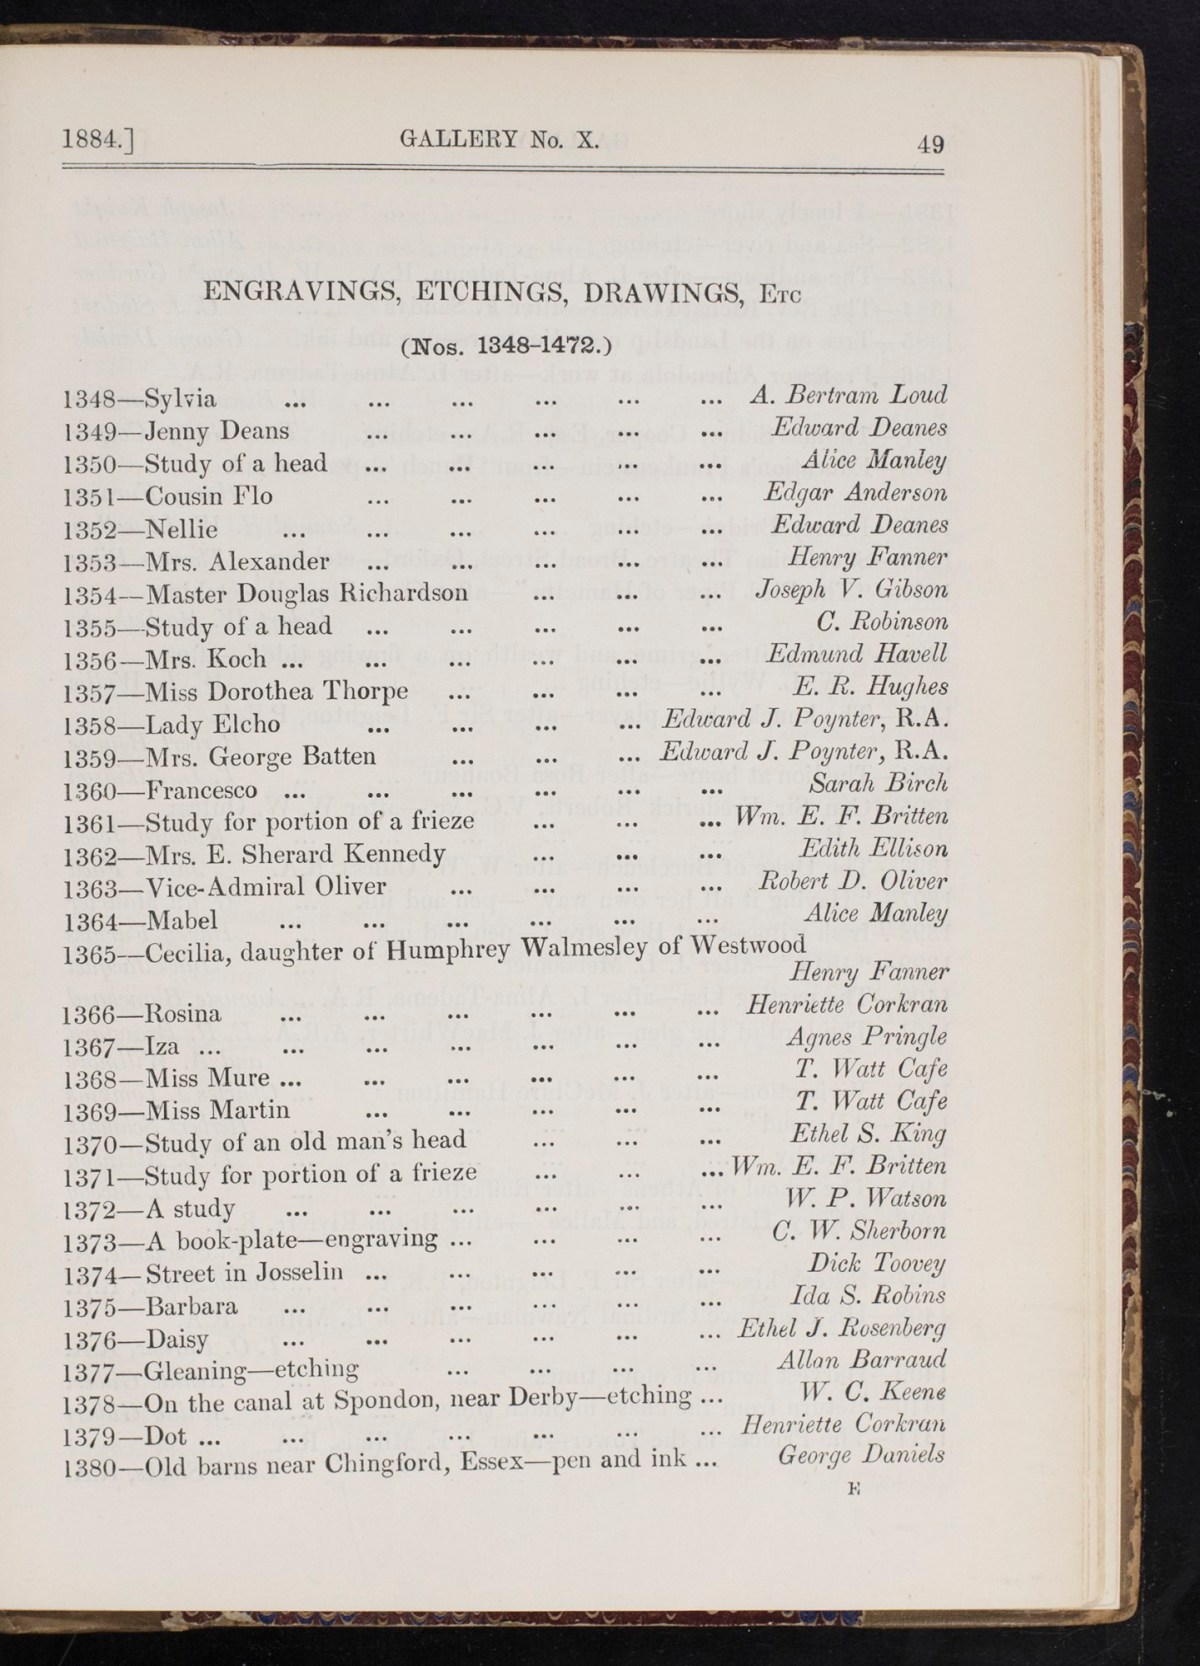 1884.] GALLERY No. X. 49
ENGRAVINGS, ETCHINGS, DRAWINGS, Etc
(Nos. 1348-1472.)
1348—Sylvia ... ... ... ... ... ... A. Bertram Loud
1349—Jenny Deans ... ... ... ... ... Edward Deanes
1350—Study of a head ... ... ... ... ... Alice Manley
1351—Cousin Flo ... ... ... ... ... Edgar Anderson
1352—Nellie ... ... ... ... ... ... Edward Deanes
1353—Mrs. Alexander ... ... ... ... ... Henry Fanner
1354—Master Douglas Richardson ... ... ... Joseph V. Gibson
1355—Study of a head ... ... ... ... ... C. Robinson
1356—Mrs. Koch ... ... ... ... ... ... Edmund Havell
1357—Miss Dorothea Thorpe ... ... ... ... E. R. Hughes
1358—Lady Elcho ... ... ... ... Edward J. Poynter, R.A.
1359—Mrs. George Batten ... ... ... Edward J. Poynter, R.A.
1360—Francesco ... ... ... ... ... ... Sarah Birch
1361—Study for portion of a frieze ... ... ... Wm. E. F. Britten
1362—Mrs. E. Sherard Kennedy ... ... ... Edith Ellison
1363—Vice-Admiral Oliver ... ... ... ... Robert D. Oliver
1364—Mabel ... ... ... ... ... ... Alice Manley
1365—Cecilia, daughter of Humphrey Walmesley of Westwood
Henry Fanner
1366—Rosina ... ... ... ... ... ... Henriette Corkran
1367—Iza ... ... ... ... ... ... ... Agnes Pringle
1368—Miss Mure ... ... ... ... ... ... T. Watt Cafe
1369—Miss Martin ... ... ... ... ... T. Watt Cafe
1370—Study of an old man's head ... ... ... Ethel S. King
1371—Study for portion of a frieze ... ... ... Wm. E. F. Britten
1372—A study ... ... ... ... ... ... W. P. Watson
1373—A book-plate—engraving ... ... ... ... C. W. Sherborn
1374—Street in Josselin ... ... ... ... ... Dick Toovey
1375—Barbara ... ... ... ... ... ... Ida S. Robins
1376—Daisy ... ... ... ... ... ... Ethel J. Rosenberg
1377—Gleaning—etching ... ... ... ... Allan Barraud
1378—On the canal at Spondon, near Derby—etching ... W. C. Keene
1379—Dot ... ... ... ... ... ... ... Henriette Corkran
1380—Old barns near Chingford, Essex—pen and ink ... George Daniels
E